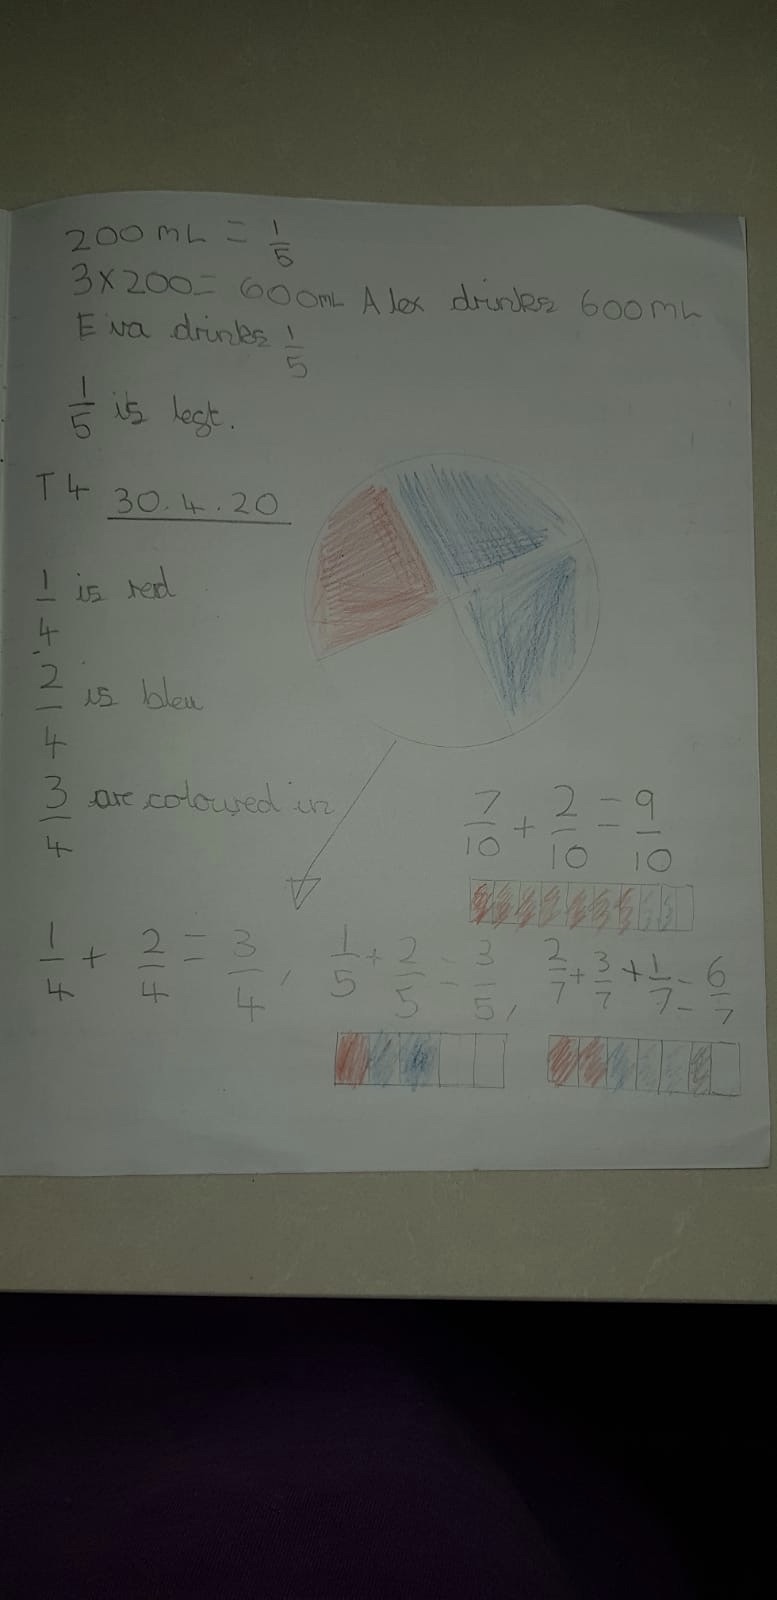 200mL = 1/5
3×200= 600mL Alex drinks 600mL
Eva drinks 1/5
1/5 is legt.
T4 30.4.20
1/4 is red
2/4 is bleu
3/4 are coloured in
7/10 + 2/10 = 9/10
1/4 + 2/4 = 3/4, 1/5 + 2/5 = 3/5, 2/7 + 3/7 + 1/7 = 6/7